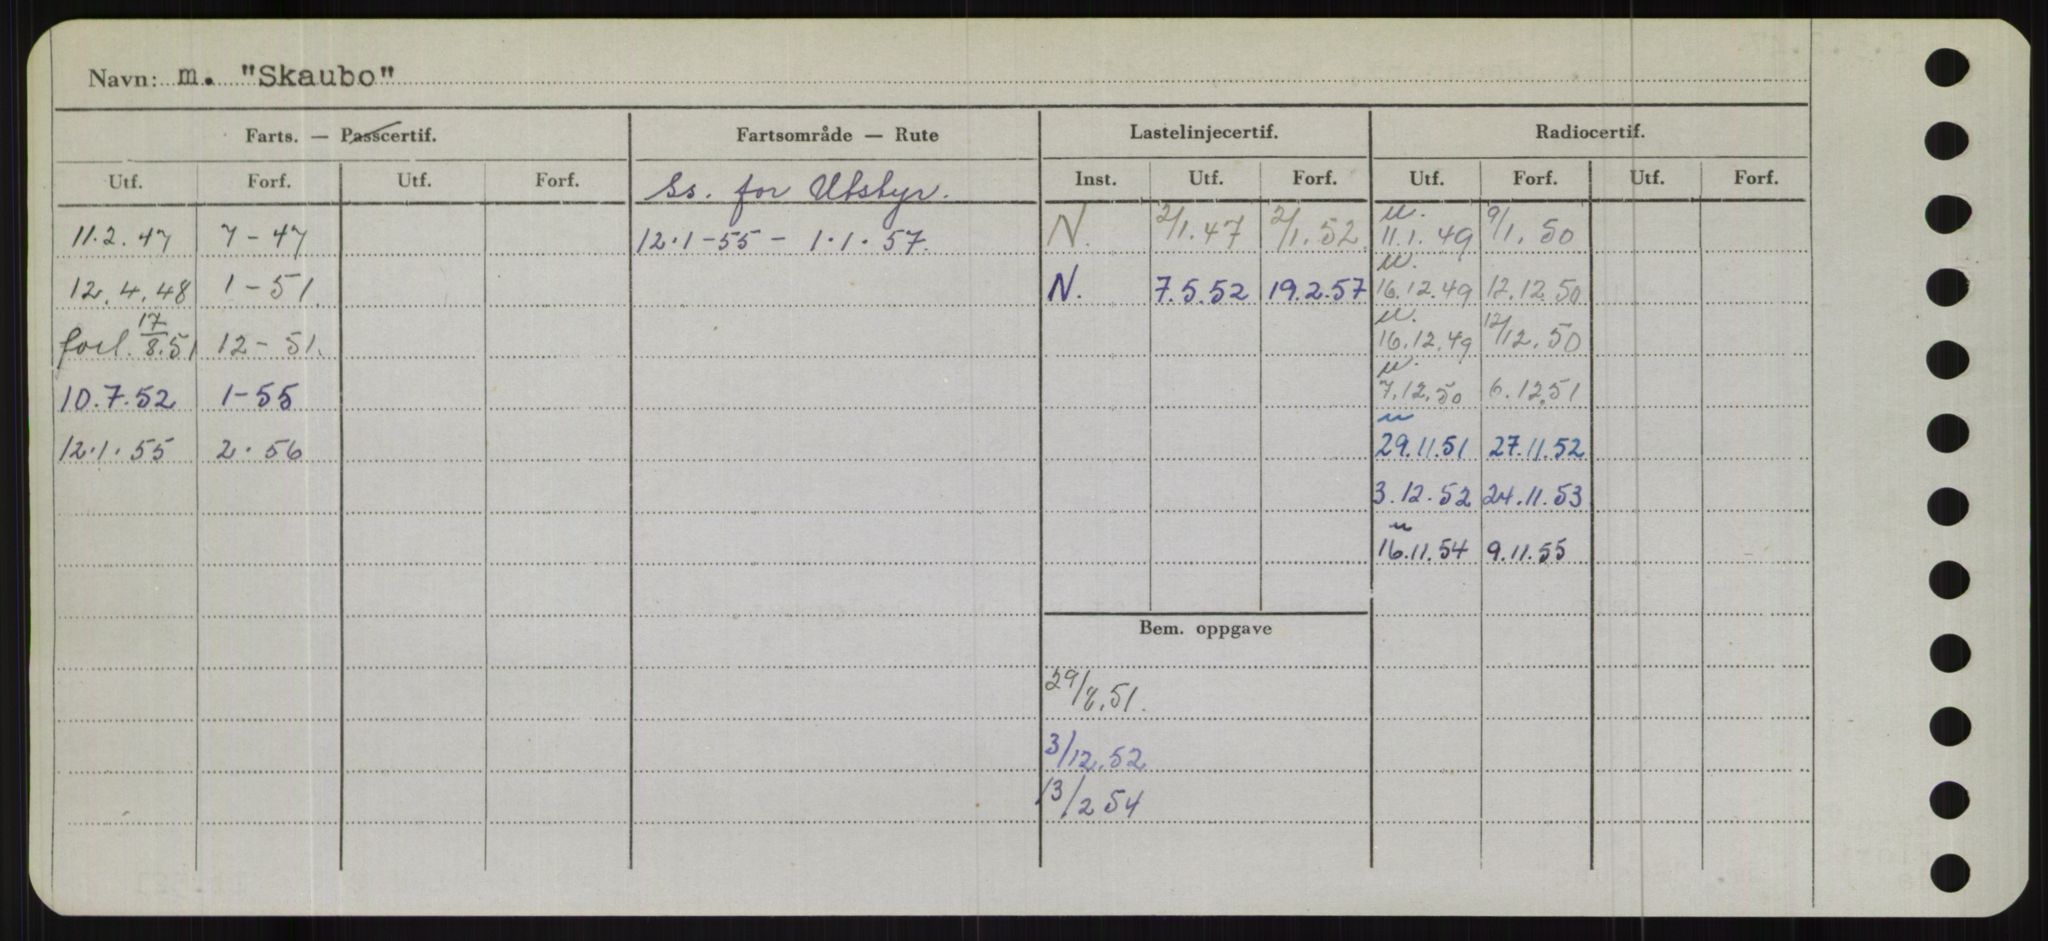 Navn: m. "Skaubo"
Farts. — Passcertif. Fartsområde — Rute Lastelinjecertif. Radiocertif.
Utf. Forf. Utf. Forf. Ss. for Utstyr. Inst. Utf. Forf. Utf. Forf. Utf. Forf.
11.2.47 7-47 12.1-55 - 1.1.57. N. 2/1.47 2/1.52 u. 11.1.49 9/1.50
12.4.48 1-51. N. 7.5.52 19.2.57 u. 16.12.49 12.12.50
forl. 17/8.51 12-51. u. 16.12.49 12/12.50
10.7.52 1-55 u. 7.12.50 6.12.51
12.1.55 2.56 u 29.11.51 27.11.52
3.12.52 24.11.53
u 16.11.54 9.11.55
Bem. oppgave
29/8.51.
3/12.52
13/2 54